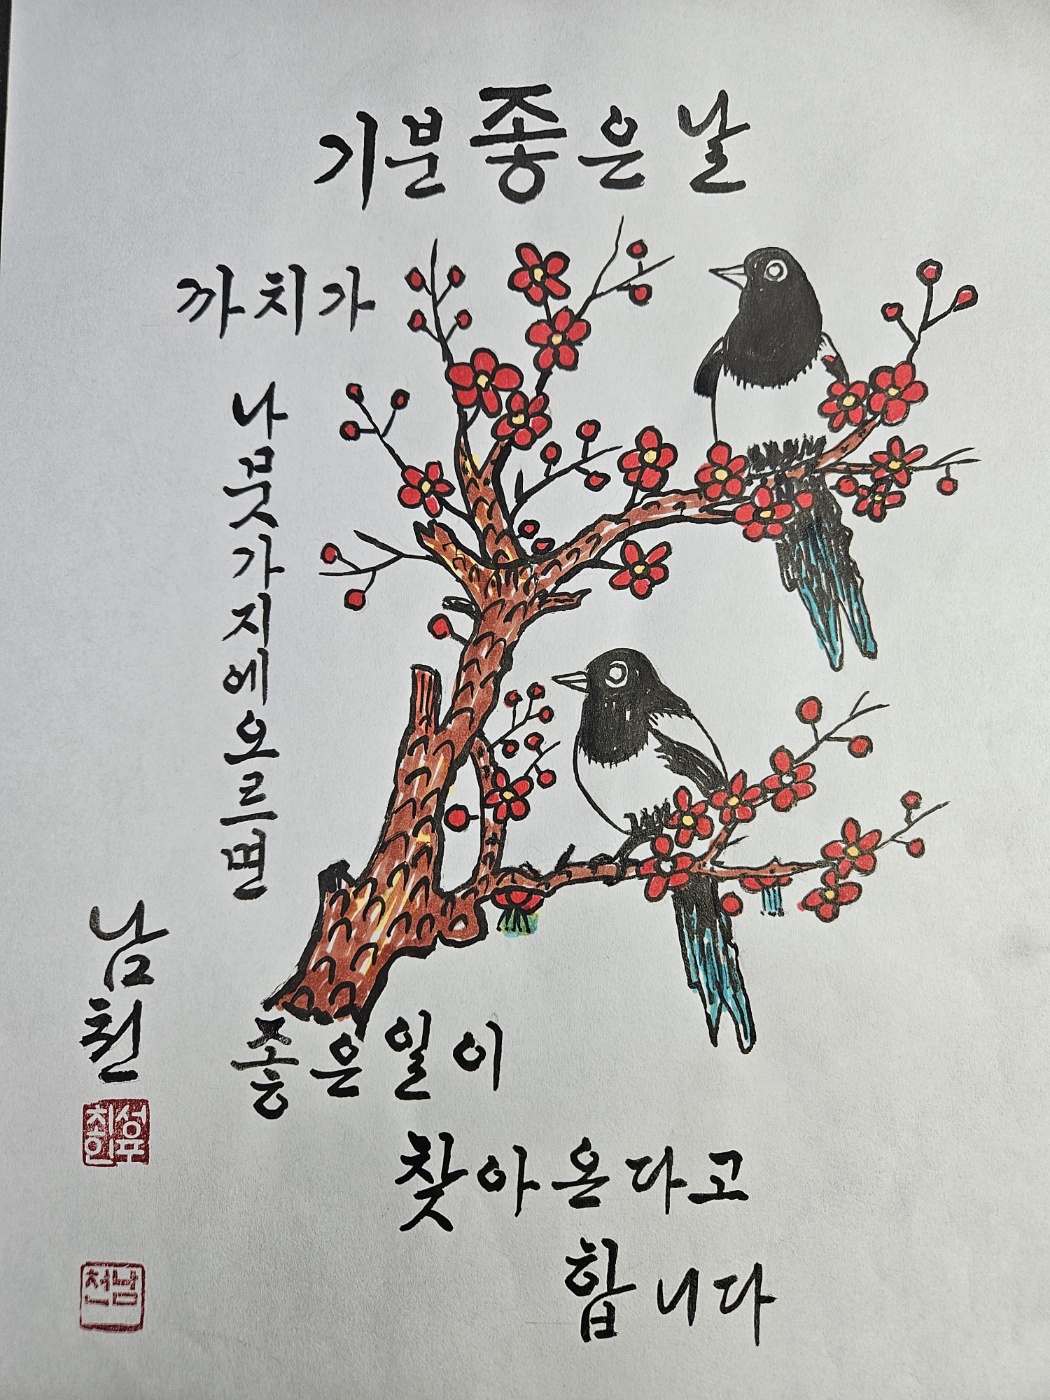 기분 좋은 날
까치가
나뭇가지에오르면
좋은일이
찾아온다고
합니다
남천
남천